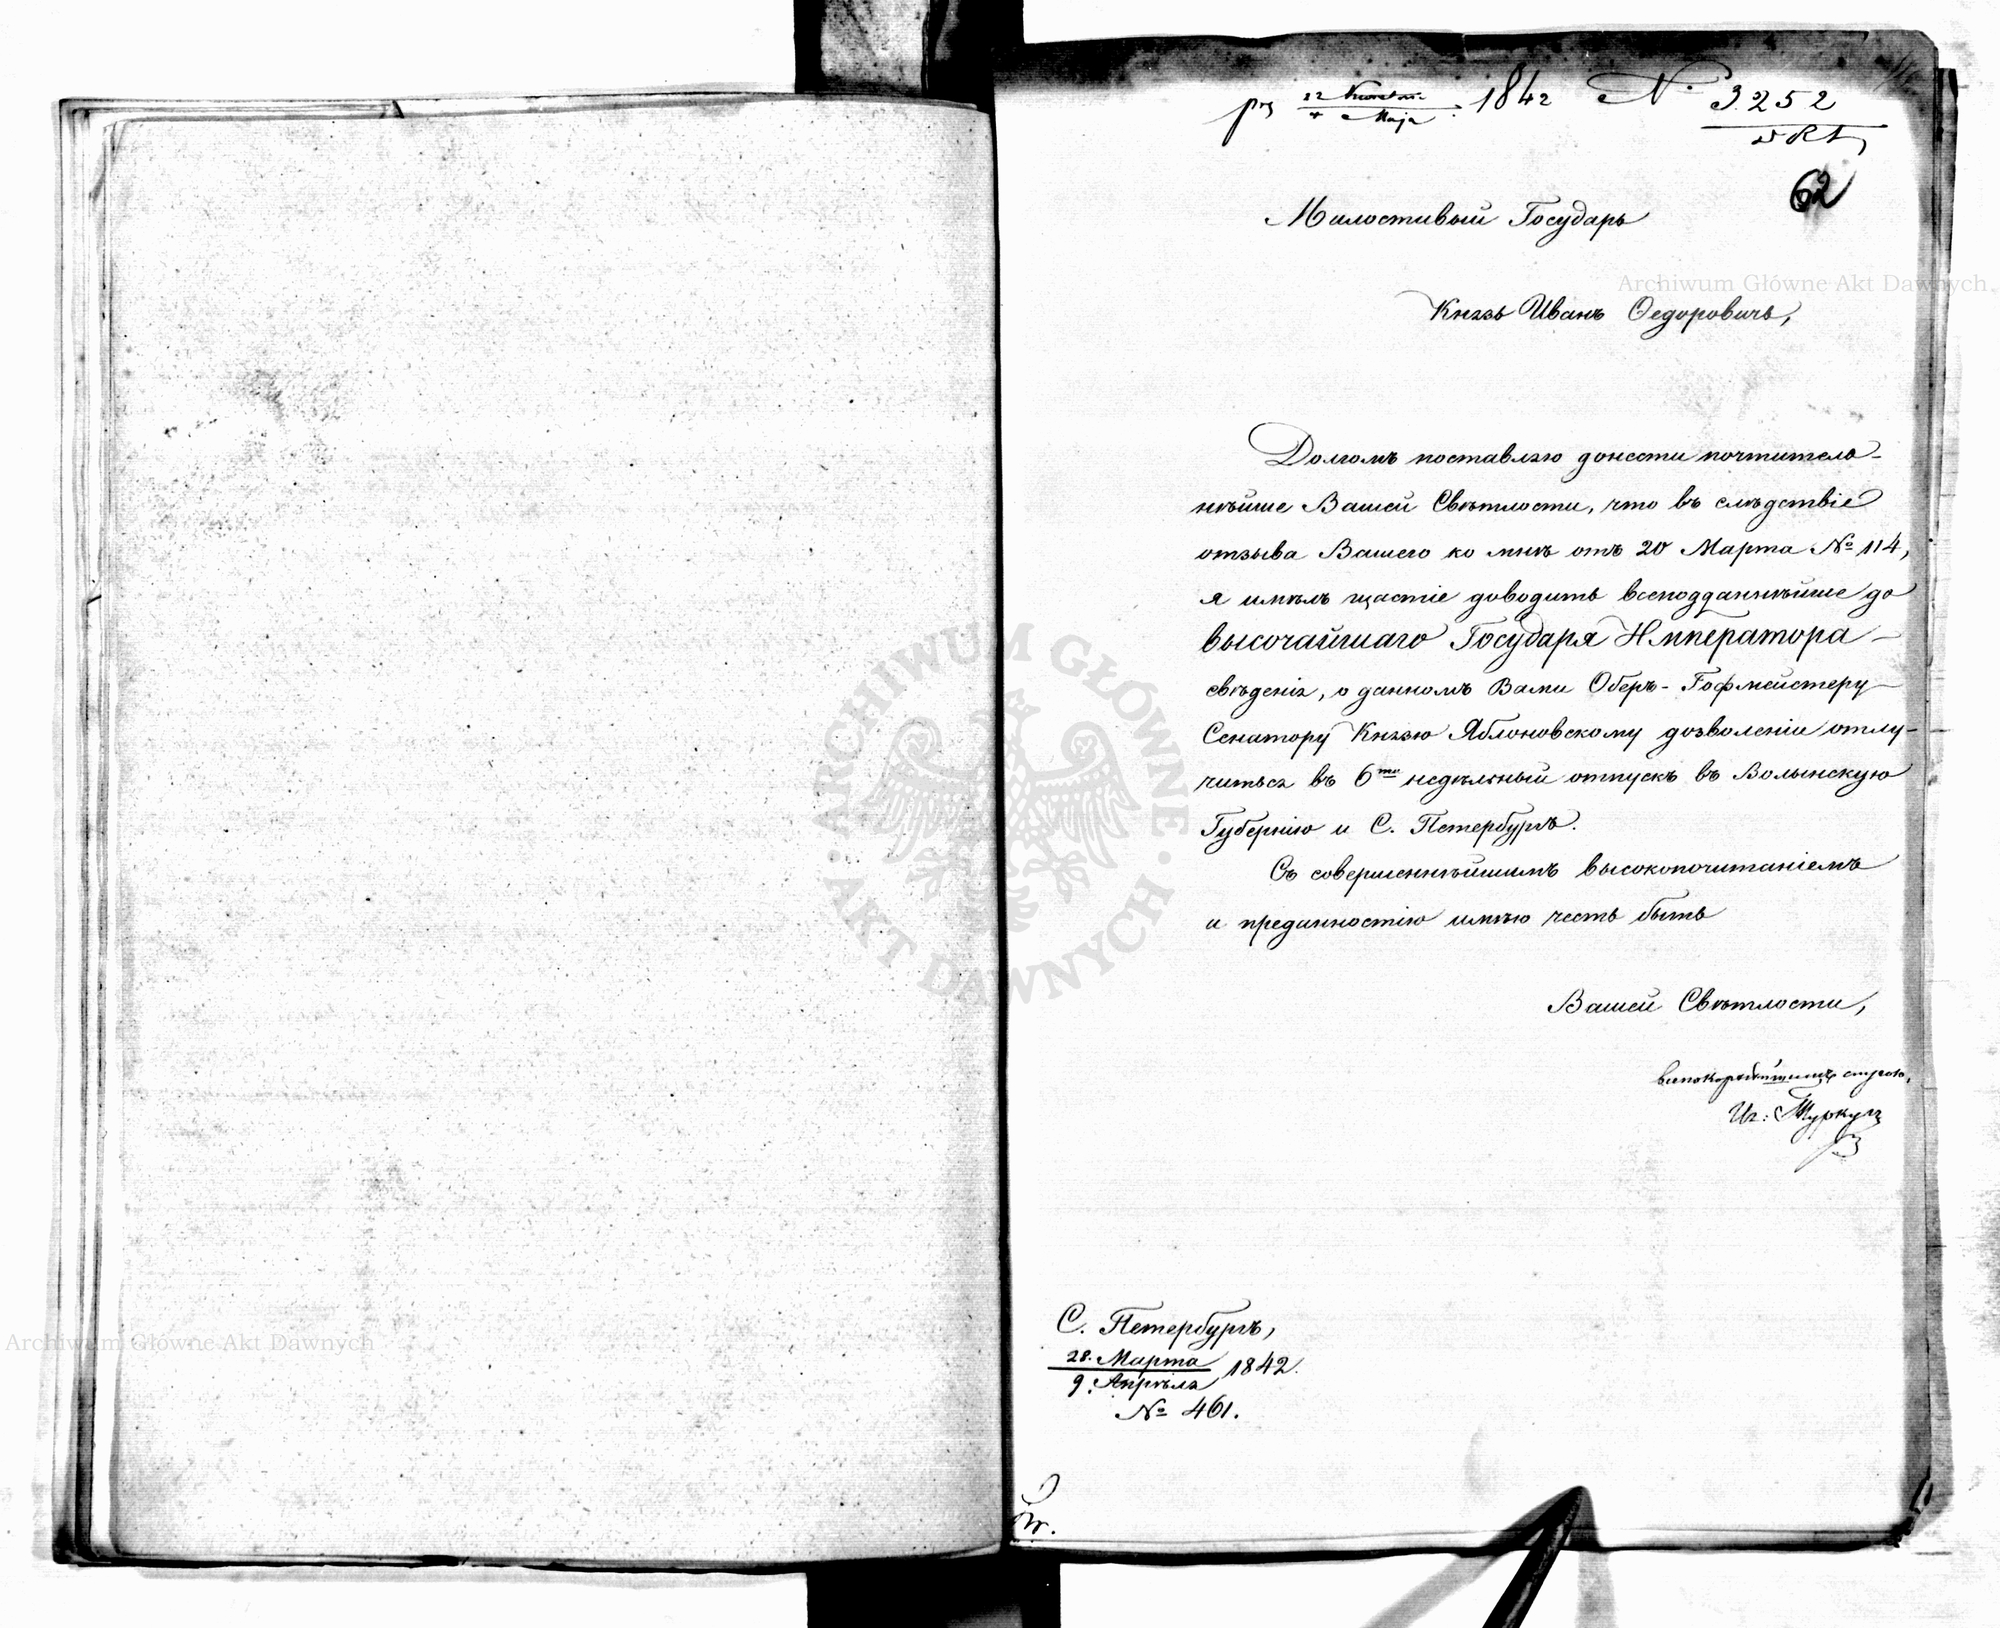 prz 22 Kwietnia / 4 Maja 1842 № 3252
62
Милостивый Государь
Князь Иванъ Ѳедоровичъ,
Долгомъ поставляю донести почтитель-
нѣйше Вашей Свѣтлости, что въ слѣдствіе
отзыва Вашего ко мнѣ отъ 20 Марта № 114,
я имѣлъ щастіе доводить всеподданнѣйше до
высочайшаго Государя Императора
свѣденія, о данномъ Вами Оберъ-Гофмейстеру
Сенатору Князю Яблоновскому дозволеніи отлу-
читься въ 6ти недѣльный отпускъ въ Волынскую
Губернію и С. Петербургъ.
Съ совершеннѣйшимъ высокопочитаніемъ
и преданностію имѣю честь быть
Вашей Свѣтлости,
всепокорнѣйшимъ слугою,
Иг: Туркулъ
С. Петербургъ,
28. Марта / 9. Апрѣля 1842.
№ 461.
Archiwum Główne Akt Dawnych
Archiwum Główne Akt Dawnych
ARCHIWUM GŁÓWNE · AKT DAWNYCH ·